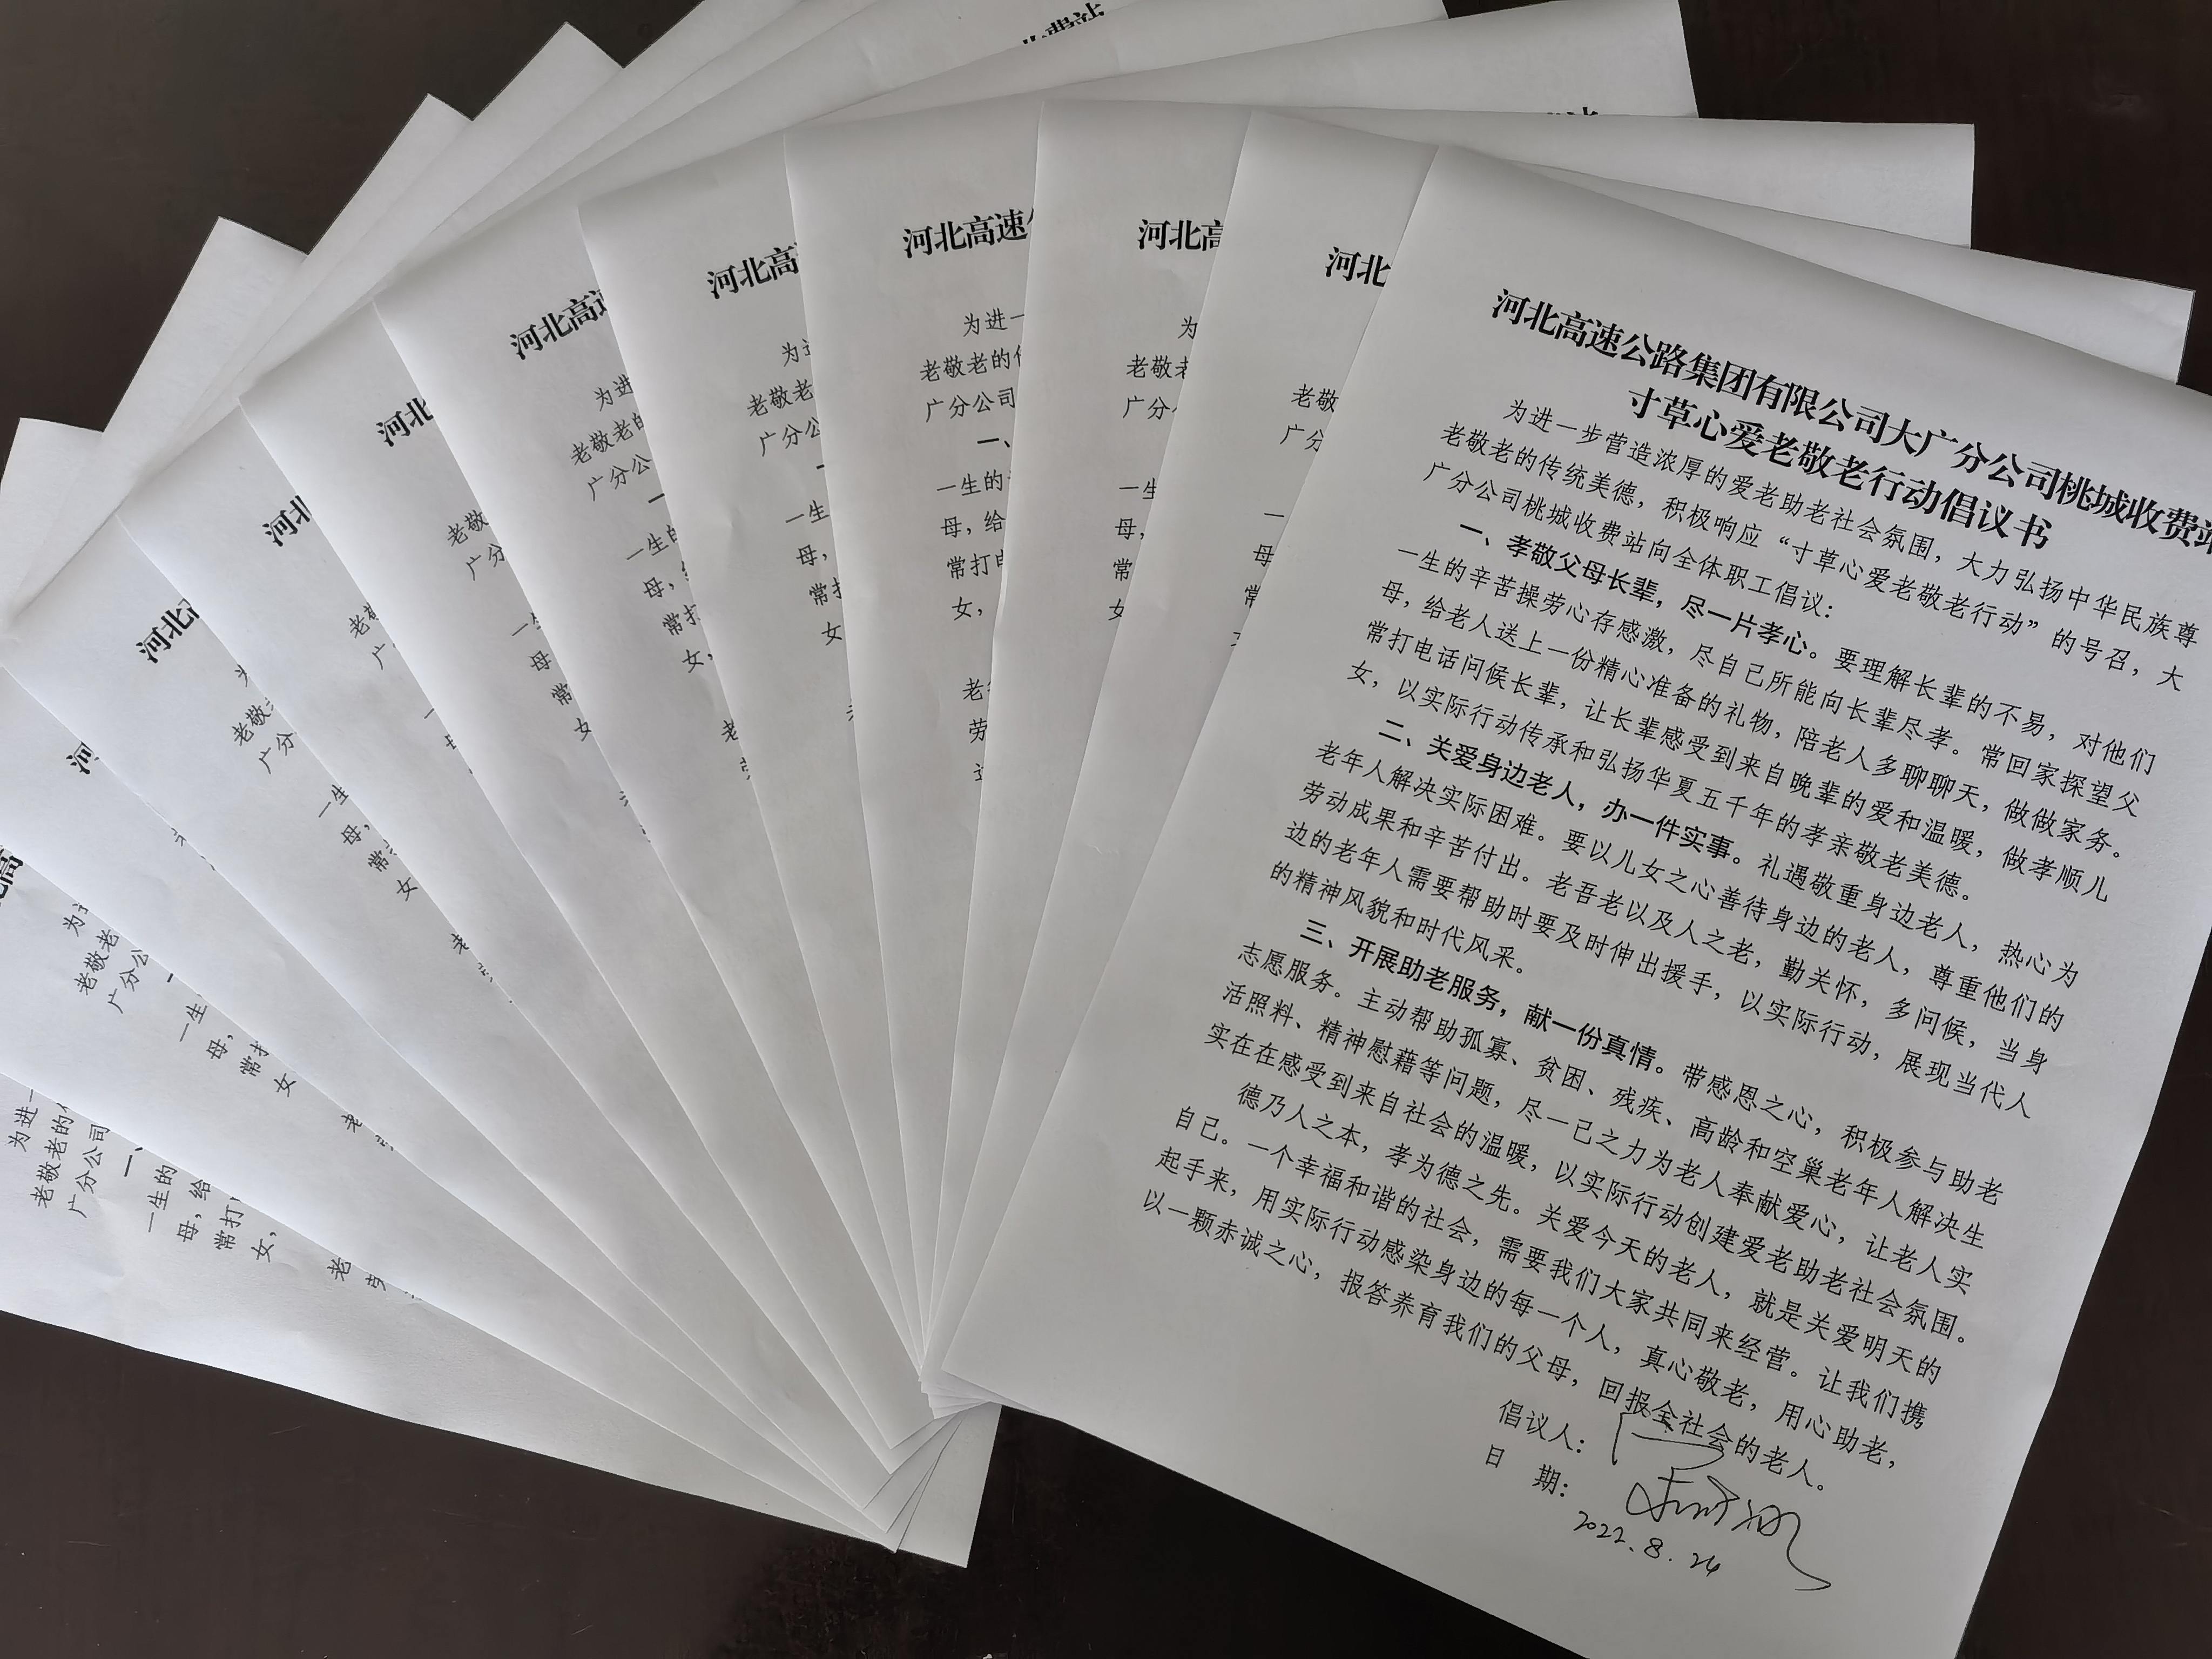 河北高速公路集团有限公司大广分公司桃城收费站
寸草心爱老敬老行动倡议书
为进一步营造浓厚的爱老助老社会氛围，大力弘扬中华民族尊
老敬老的传统美德，积极响应“寸草心爱老敬老行动”的号召，大
广分公司桃城收费站向全体职工倡议：
一、孝敬父母长辈，尽一片孝心。要理解长辈的不易，对他们
一生的辛苦操劳心存感激，尽自己所能向长辈尽孝。常回家探望父
母，给老人送上一份精心准备的礼物，陪老人多聊聊天，做做家务。
常打电话问候长辈，让长辈感受到来自晚辈的爱和温暖，做孝顺儿
女，以实际行动传承和弘扬华夏五千年的孝亲敬老美德。
二、关爱身边老人，办一件实事。礼遇敬重身边老人，热心为
老年人解决实际困难。要以儿女之心善待身边的老人，尊重他们的
劳动成果和辛苦付出。老吾老以及人之老，勤关怀，多问候，当身
边的老年人需要帮助时要及时伸出援手，以实际行动，展现当代人
的精神风貌和时代风采。
三、开展助老服务，献一份真情。带感恩之心，积极参与助老
志愿服务。主动帮助孤寡、贫困、残疾、高龄和空巢老年人解决生
活照料、精神慰藉等问题，尽一己之力为老人奉献爱心，让老人实
实在在感受到来自社会的温暖，以实际行动创建爱老助老社会氛围。
德乃人之本，孝为德之先。关爱今天的老人，就是关爱明天的
自己。一个幸福和谐的社会，需要我们大家共同来经营。让我们携
起手来，用实际行动感染身边的每一个人，真心敬老，用心助老，
以一颗赤诚之心，报答养育我们的父母，回报全社会的老人。
倡议人：
日 期：
2022.8.24